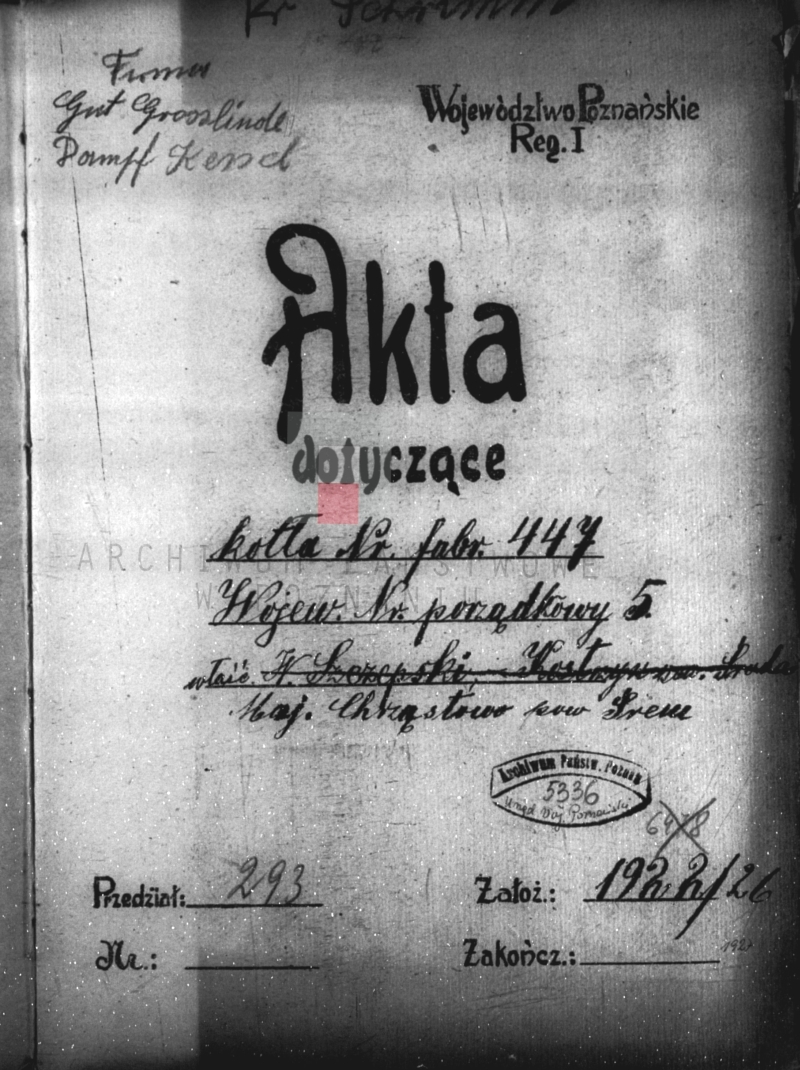 Kr Schrimm
Firma
Gut Grosslinde
Dampf Kessel
Województwo Poznańskie
Reg. I
Akta
dotyczące
kotła Nr. fabr. 447
Wojew. Nr. porządkowy 5.
właśc. W. Szczepski, - Kostrzyn pow. Środa
Maj. Chrząstowo pow Śrem
ARCHIWUM PAŃSTWOWE
W POZNANIU
Archiwum Państw. Poznań
5336
Urząd Woj. Poznański
6478
Przedział: 293
Założ.: 1922/26
Nr.:
Zakończ.: 192